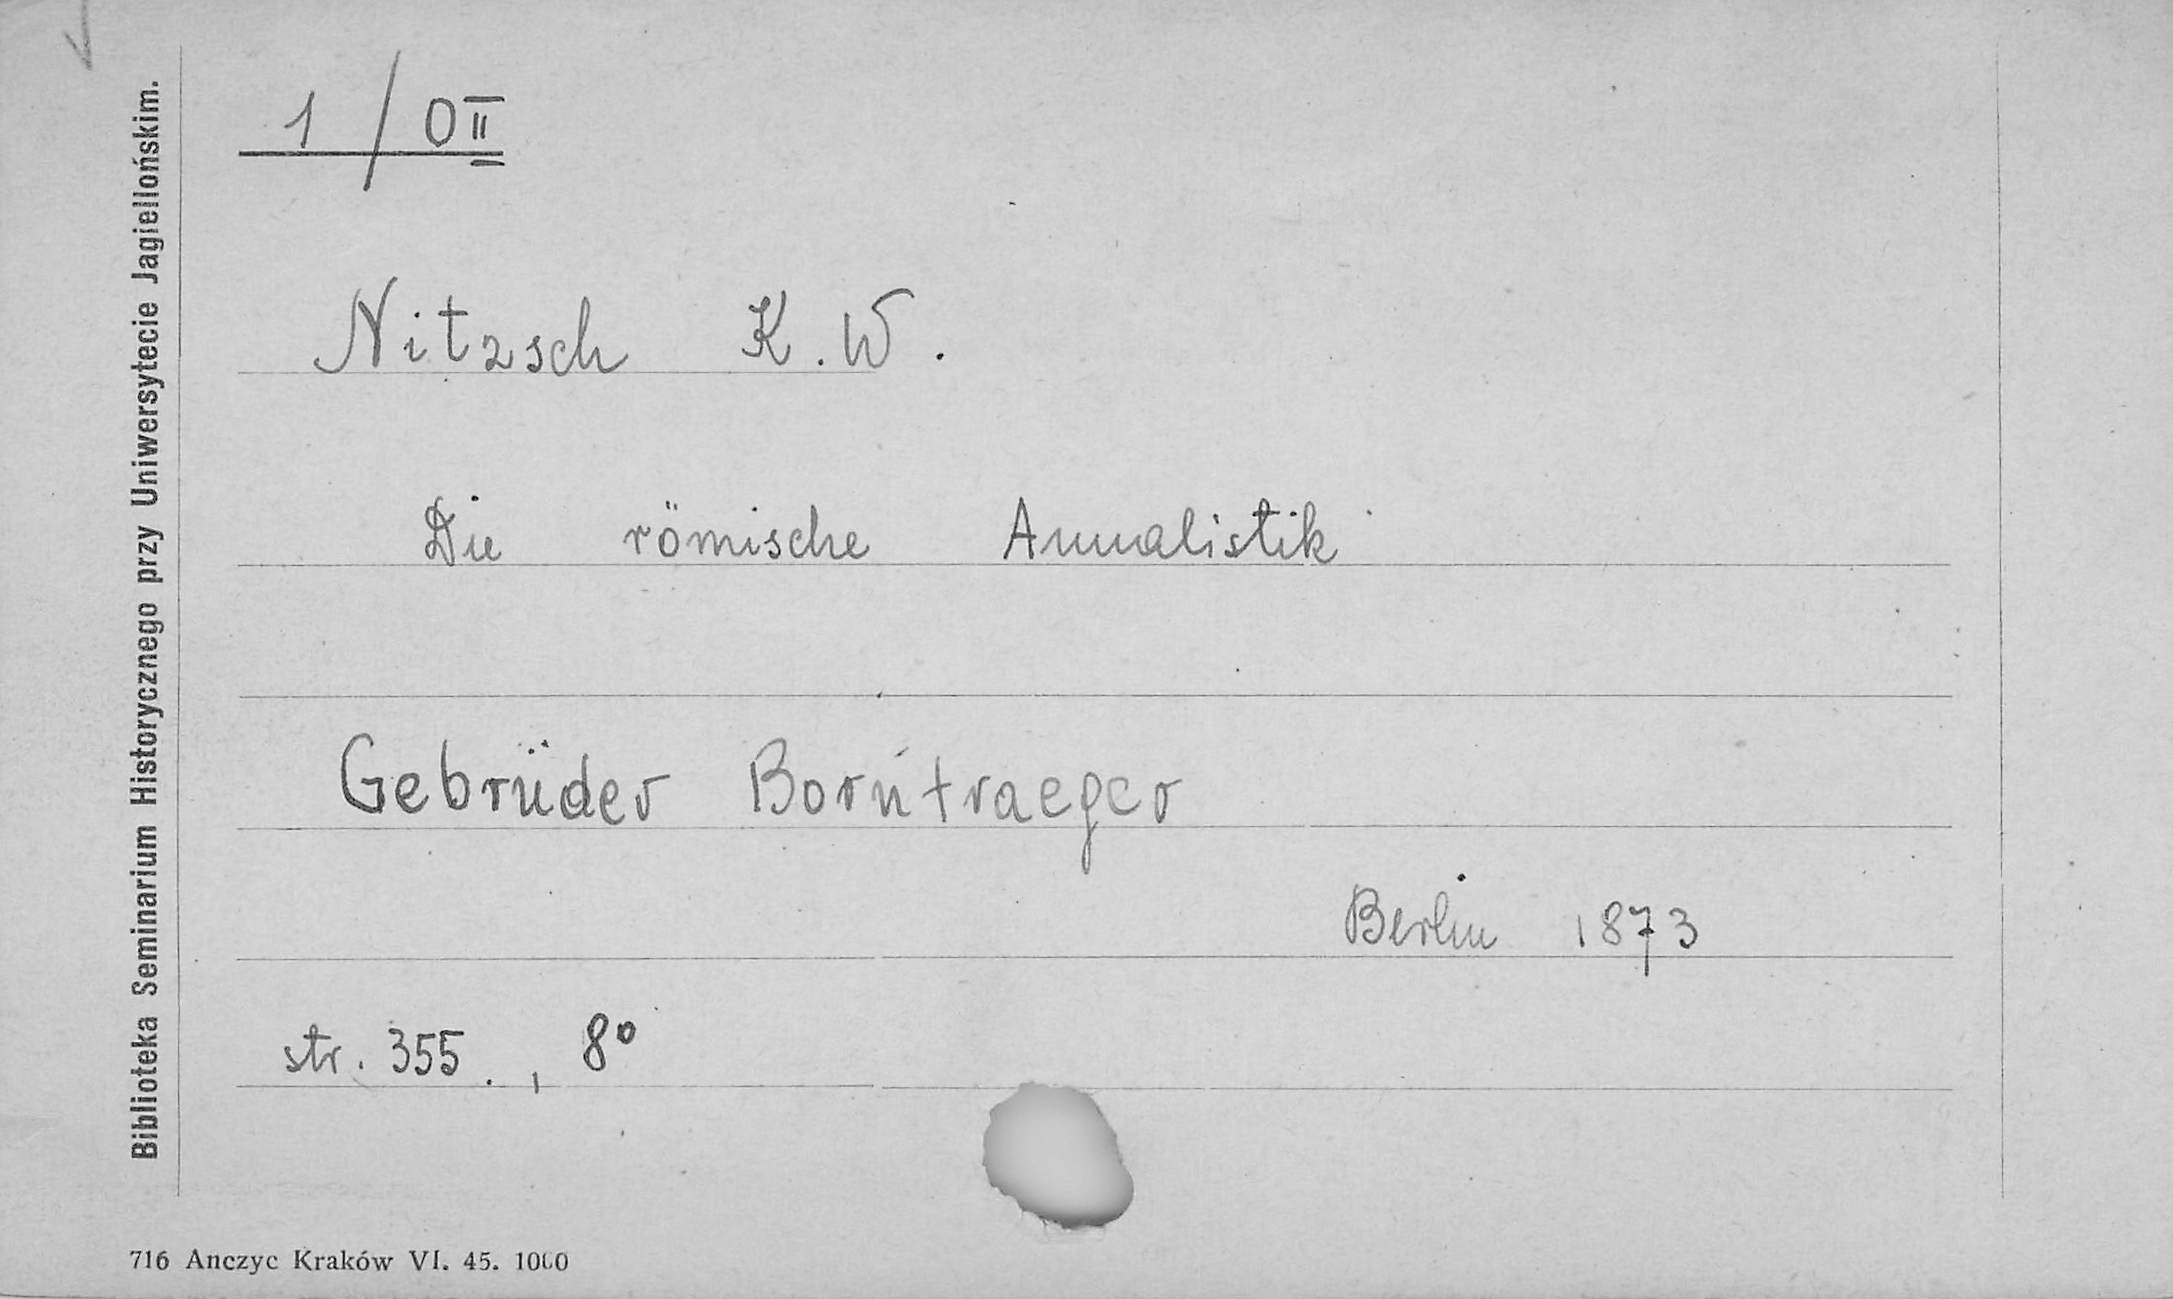 1 / 0 II
Nitzsch K. W.
Die römische Annalistik
Gebrüder Borntraeger
Berlin 1873
str. 355. , 8°
Biblioteka Seminarium Historycznego przy Uniwersytecie Jagiellońskim.
716 Anczyc Kraków VI. 45. 1000